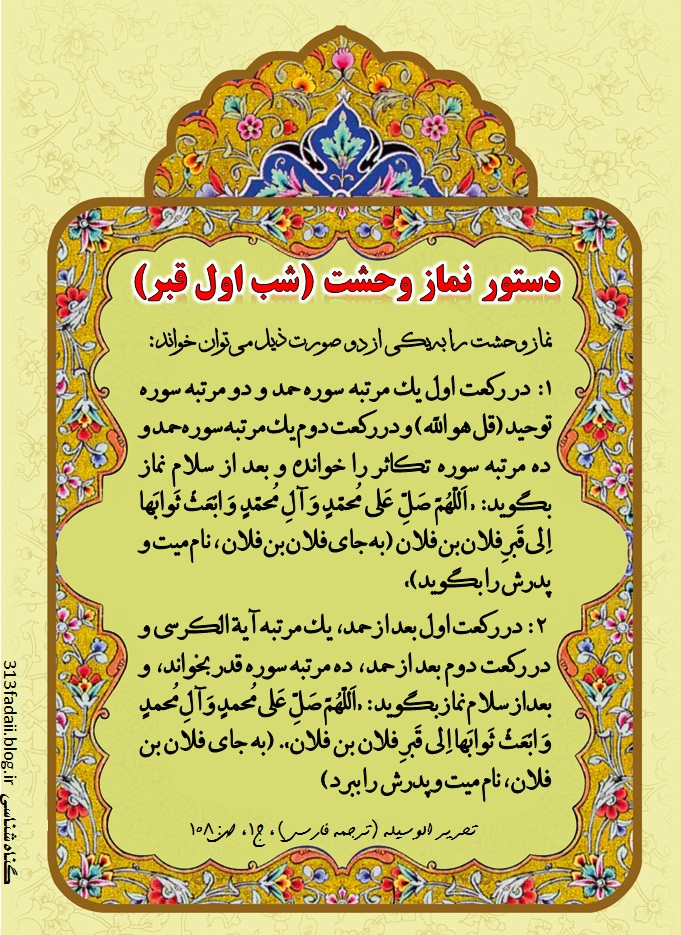 دستور نماز وحشت (شب اول قبر)
نماز وحشت را به یکی از دو صورت ذیل می توان خواند:
۱: در رکعت اول یك مرتبه سوره حمد و دو مرتبه سوره
توحید (قل هو الله) و در رکعت دوم یك مرتبه سوره حمد و
ده مرتبه سوره تکاثر را خوانده و بعد از سلام نماز
بگوید: «اَللّهُمّ صَلِّ عَلی مُحمّدٍ وَ آلِ مُحمّدٍ وَ ابعَث ثَوابَها
اِلی قَبرِ فلان بن فلان (به جای فلان بن فلان، نام میت و
پدرش را بگوید)».
۲: در رکعت اول بعد از حمد، یك مرتبه آیة الکرسی و
در رکعت دوم بعد از حمد، ده مرتبه سوره قدر بخواند، و
بعد از سلام نماز بگوید: «اَللّهُمّ صَلِّ عَلی مُحمدٍ وَ آلِ مُحمدٍ
وَ ابعَث ثَوابَها اِلی قَبرِ فلان بن فلان». (به جای فلان بن
فلان، نام میت و پدرش را ببرد)
تحریر الوسیله (ترجمه فارسی)، ج۱، ص۱۵۸
313fadaii.blog.ir گناه شناسی